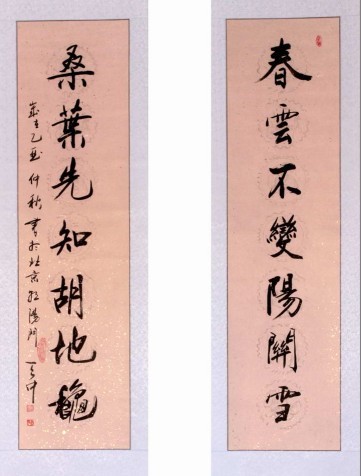 春雲不變陽關雪
桑葉先知胡地龝
歲在乙酉仲秋書於北京陽門